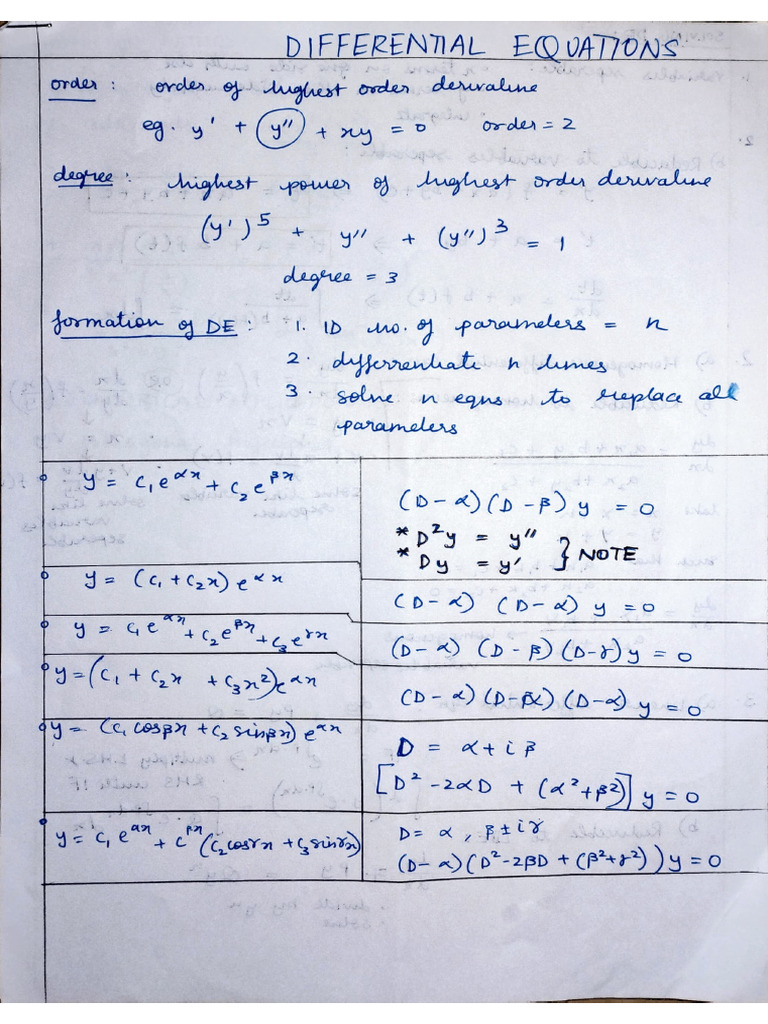 DIFFERENTIAL EQUATIONS
order : order of highest order derivative
eg. y' + y'' + xy = 0 order = 2
degree : highest power of highest order derivative
(y')⁵ + y'' + (y'')³ = 1
degree = 3
formation of DE : 1. ID no. of parameters = n
2. differrentiate n times
3. solve n eqns to replace all
parameters
y = c₁e^αx + c₂e^βx
(D-α)(D-β)y = 0
* D²y = y''
* Dy = y' } NOTE
y = (c₁ + c₂x) e^αx
(D-α) (D-α) y = 0
y = c₁e^αx + c₂e^βx + c₃e^γx
(D-α) (D-β)(D-γ)y = 0
y = (c₁ + c₂x + c₃x²)e^αx
y = (c₁cosβx + c₂sinβx) e^αx
D = α + iβ
[D² - 2αD + (α²+β²)]y = 0
y = c₁e^αx + c^βx (c₂cosγx + c₃sinγx)
D = α , β ± iγ
(D-α)(D²-2βD + (β²+γ²))y = 0